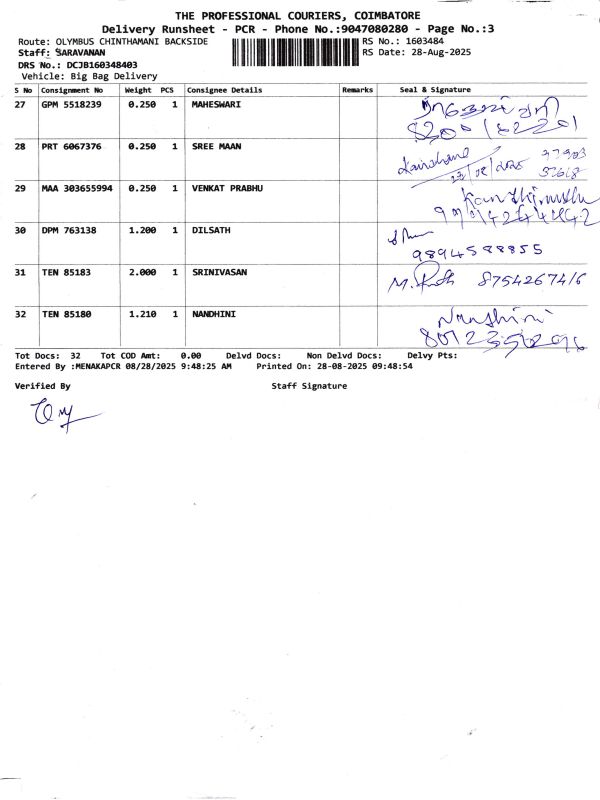 THE PROFESSIONAL COURIERS, COIMBATORE
Delivery Runsheet - PCR - Phone No.:9047080280 - Page No.:3
Route: OLYMBUS CHINTHAMANI BACKSIDE RS No.: 1603484
Staff: SARAVANAN RS Date: 28-Aug-2025
DRS No.: DCJB160348403
Vehicle: Big Bag Delivery
S No Consignment No Weight PCS Consignee Details Remarks Seal & Signature
27 GPM 5518239 0.250 1 MAHESWARI
28 PRT 6067376 0.250 1 SREE MAAN
29 MAA 303655994 0.250 1 VENKAT PRABHU
30 DPM 763138 1.200 1 DILSATH
9894588855
31 TEN 85183 2.000 1 SRINIVASAN 8754267416
32 TEN 85180 1.210 1 NANDHINI Nandhini
Tot Docs: 32 Tot COD Amt: 0.00 Delvd Docs: Non Delvd Docs: Delvy Pts:
Entered By :MENAKAPCR 08/28/2025 9:48:25 AM Printed On: 28-08-2025 09:48:54
Verified By Staff Signature